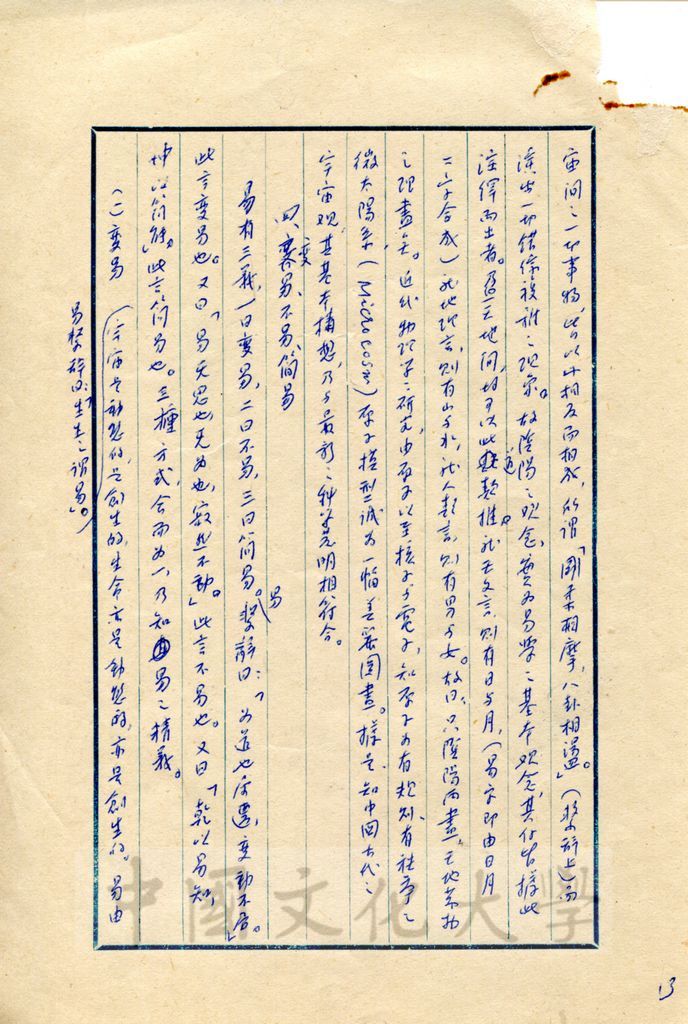 宙間之一切事物,皆以此相反而相成,所謂「剛柔相摩,八卦相盪。」(繫辭上)而
演出一切錯綜複雜之現象。故陰陽之觀念,實為易學之基本觀念,其他皆據此
注釋而出者。在天地間,均可以此類推,就天文言,則有日與月,(易字即由日月
二字合成)就地理言,則有山與水,就人類言,則有男與女。故曰:只陰陽兩畫,天地萬物
之理盡矣。近代物理學之研究由原子以至核子與電子,知原子為有規則、有秩序之
微太陽系(Microcosm)原子模型誠為一幅美麗圖畫。據是,知中國古代之
宇宙觀,其基本構想,乃與最新之科學發明相符合。
四、變易、不易、簡易
易有三義,一曰變易,二曰不易,三曰簡易。易繫辭曰:「為道也屢遷,變動不居。」
此言變易也。又曰「易无思也,无為也,寂然不動。」此言不易也。又曰「乾以易知,
坤以簡能」,此言簡易也。三種方式,合而為一,乃知易之精義。
(一)變易 宇宙是動態的,是創生的,生命亦是動態的,亦是創生的。易由
易繫辭曰:「生生之謂易。」
13
中國文化大學